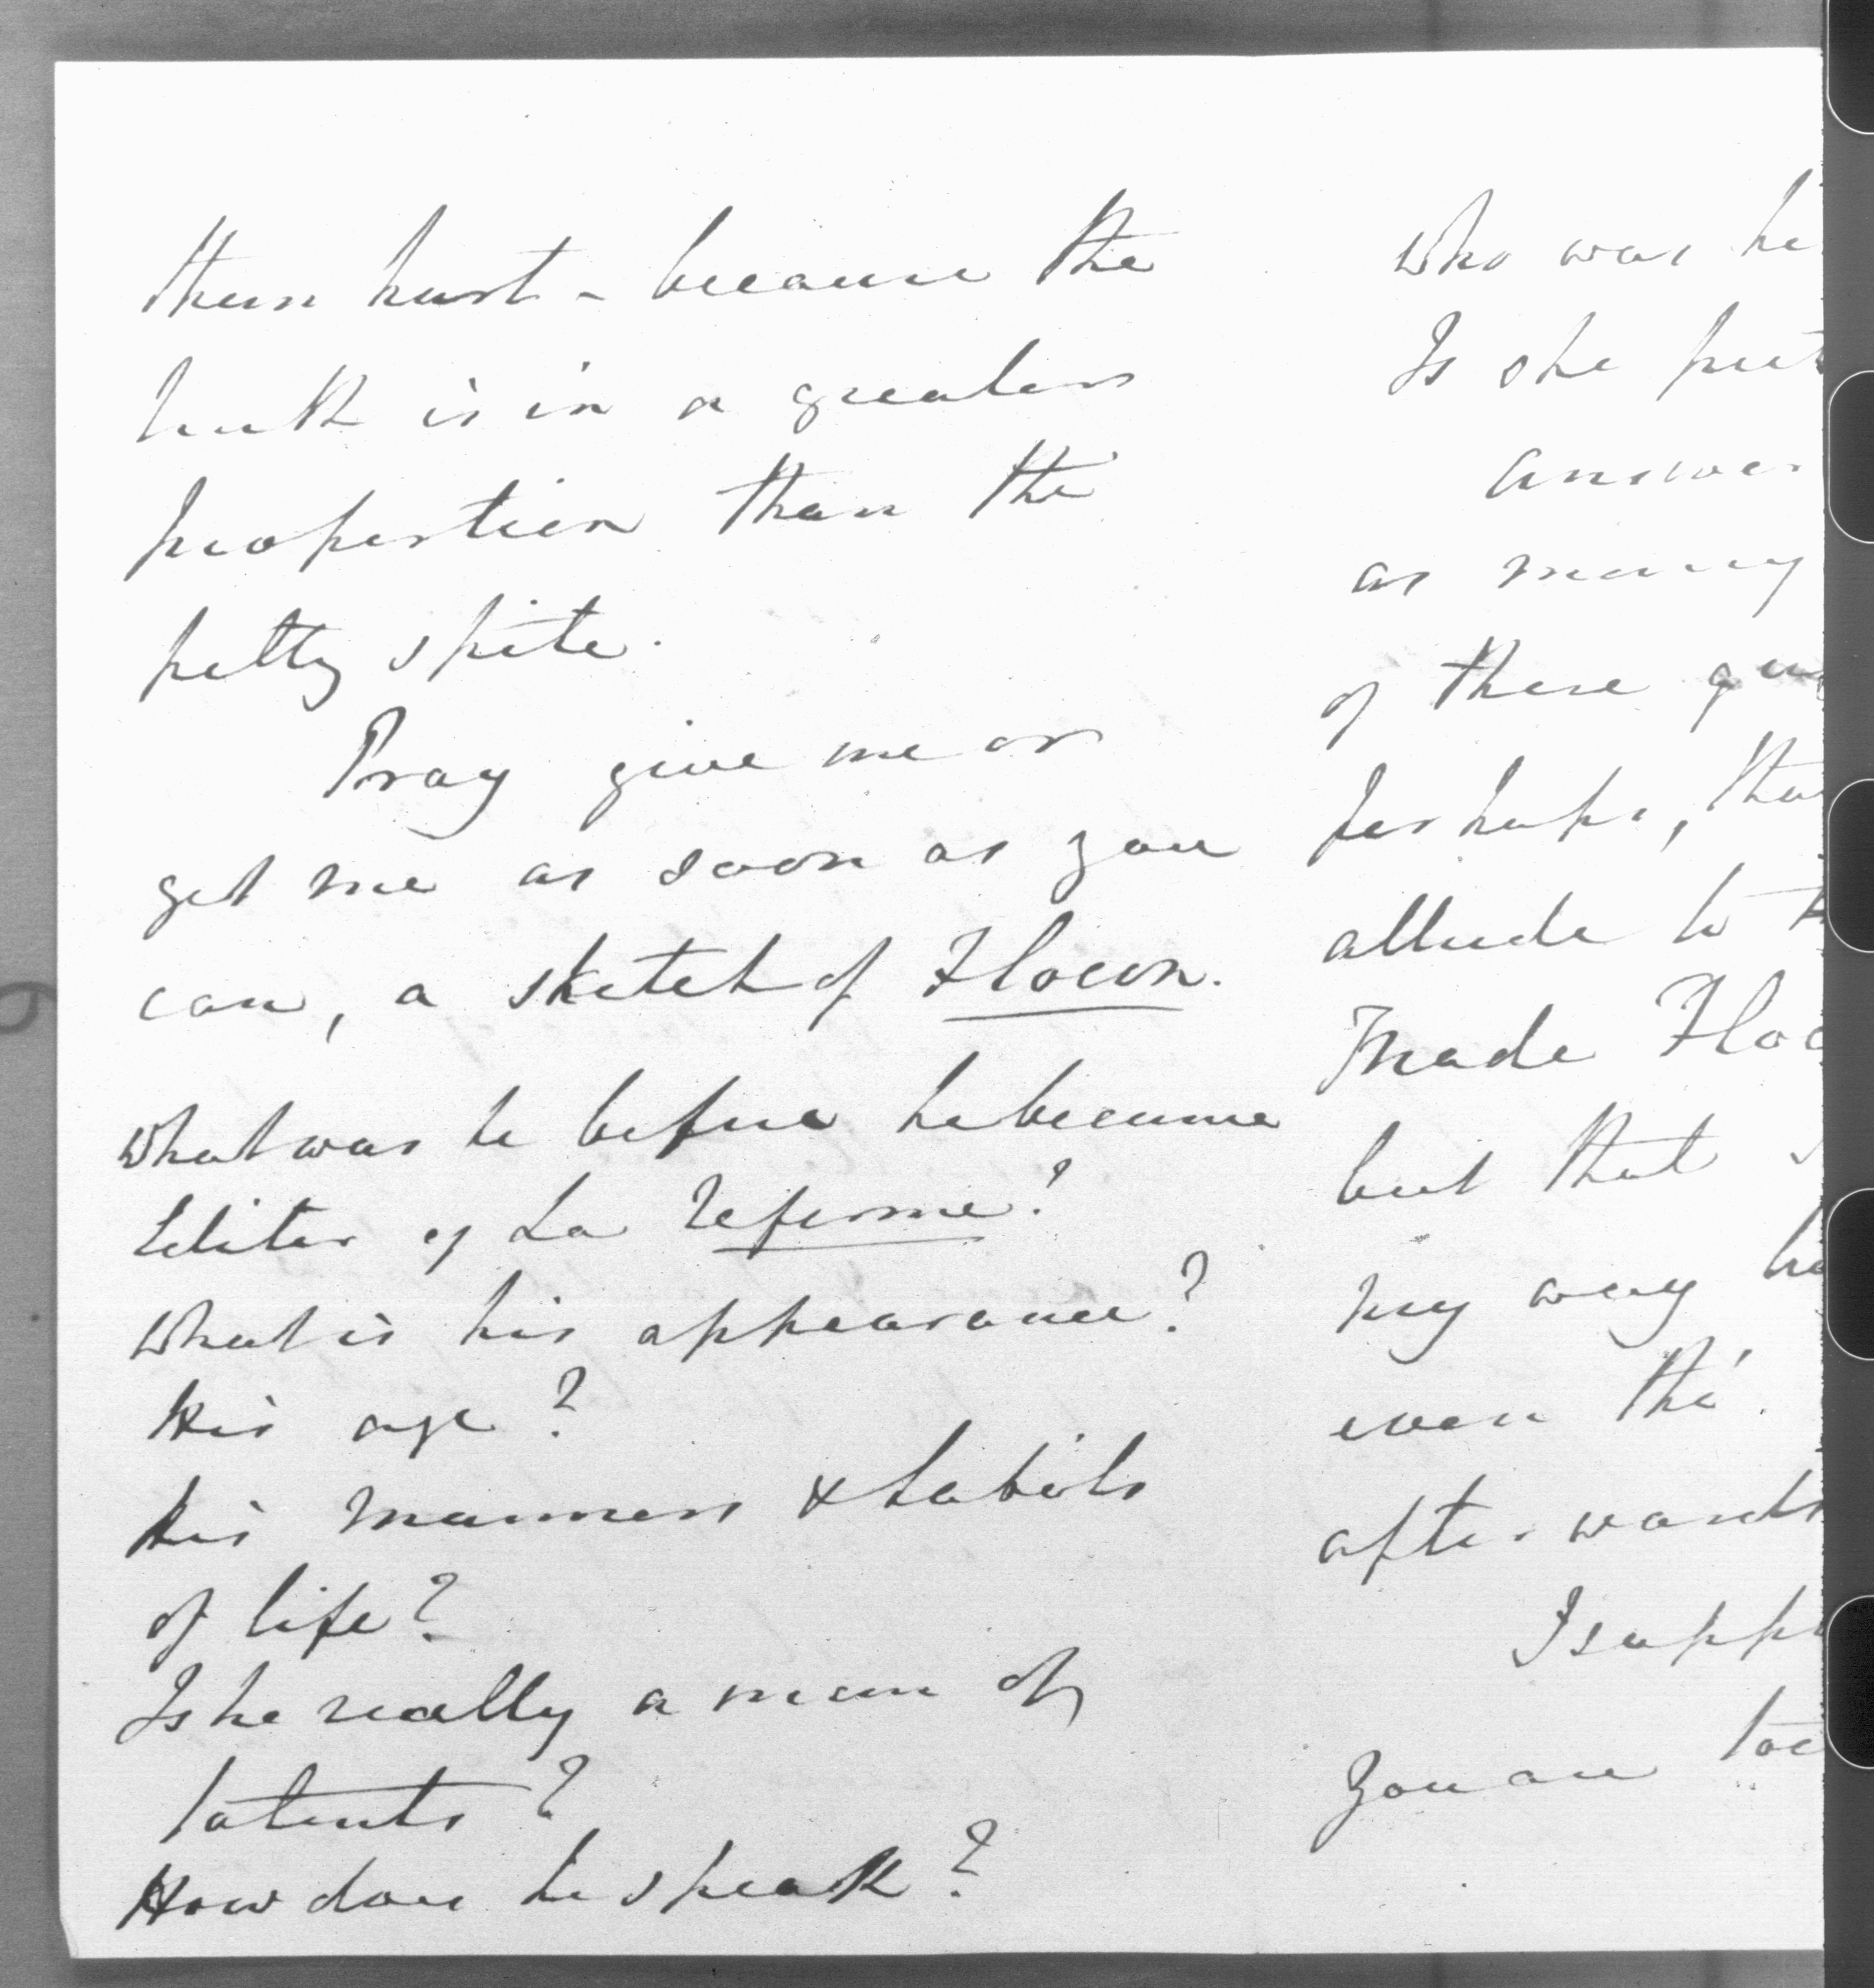 them hurt – because the
truth is in a greater
proportion than the
petty spite.
Pray give me or
get me as soon as you
can, a sketch of Flocon.
What was he before he became
Editor of La Reforme?
What is his appearance?
His age?
his manners & habits
of life?
Is he really a man of
talents?
How does he speak?
Who was he
Is she
answer
as many
of these
perhaps, tha
allude to
Made Floc
but that
my way
even tho'.
afterwards
I suppo
You are